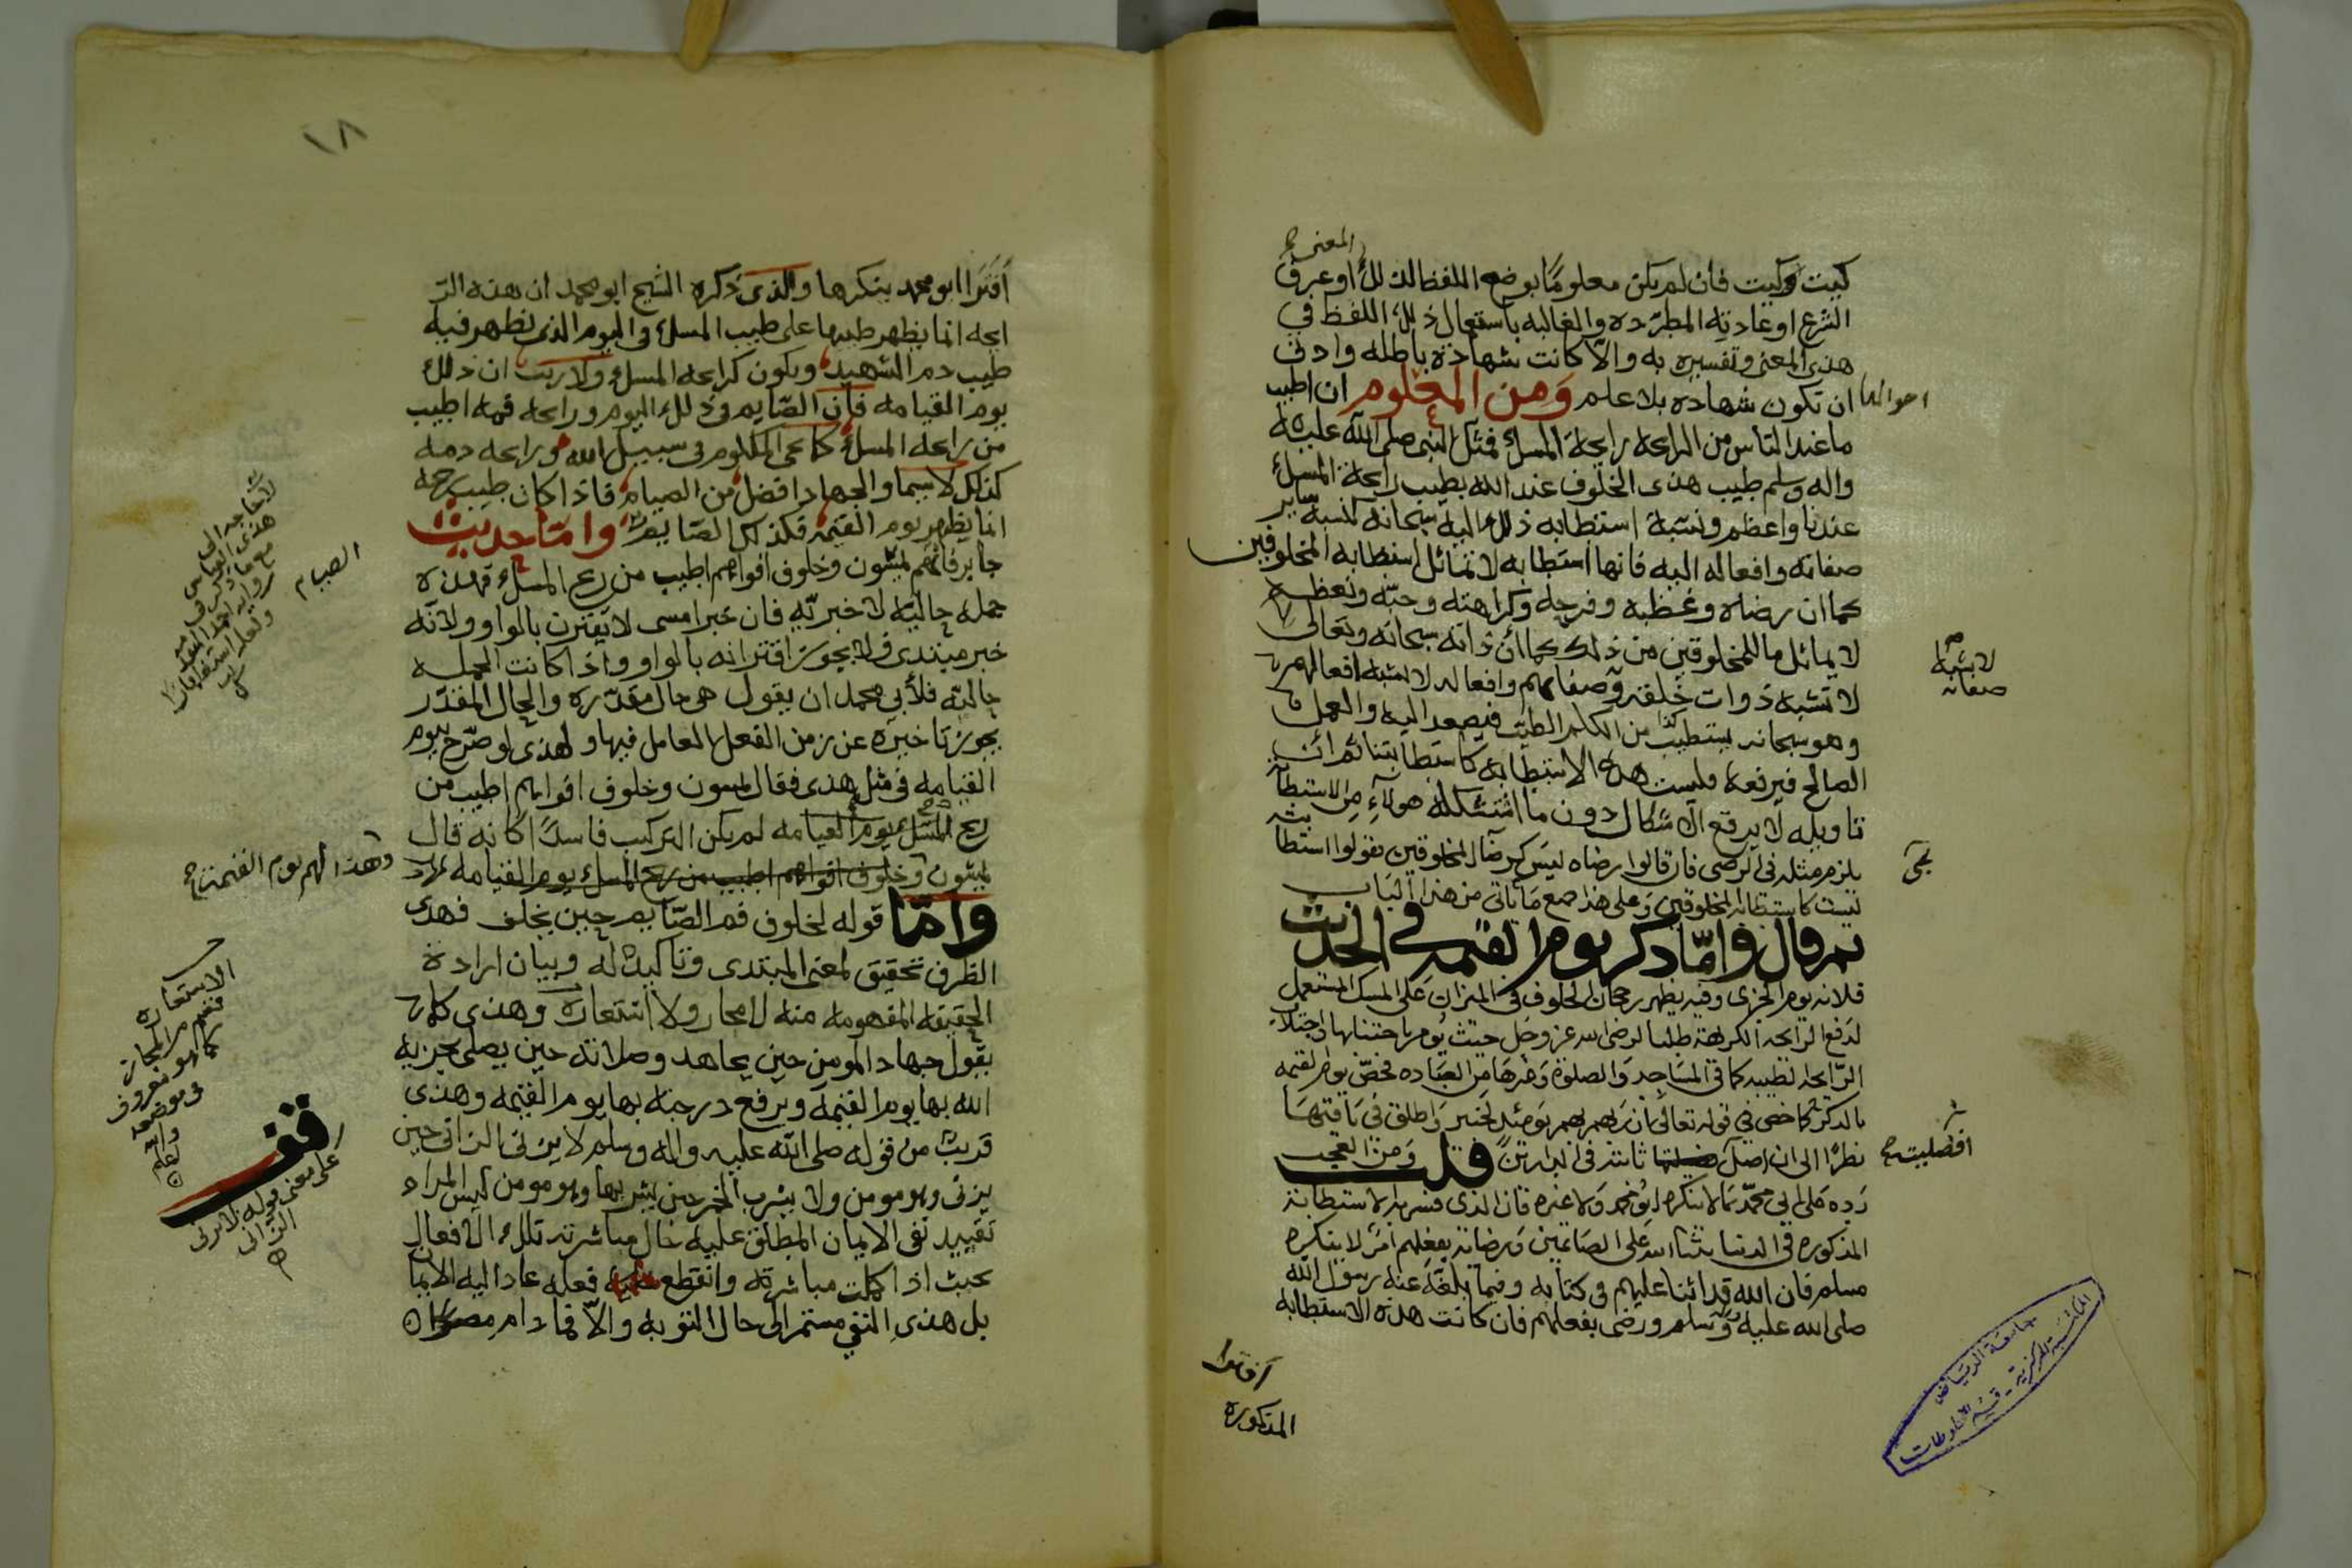 المعنى ح
كيت وكيت فان لم يكن معلومًا بوضع اللفظ لذلك او عرف
الشرع او عادته المطرده والغالبه باستعمال ذلك اللفظ في
هذى المعنى وتفسيره به والا كانت شهادة باطله وادنى
احوالها
ان تكون شهاده بلا علم ومن المعلوم ان اطيب
ما عند الناس من الرائحه رايحة المسك فمثل النبي صلى الله عليه
واله وسلم طيب هذى الخلوف عند الله بطيب رايحة المسك
عندنا واعظم ونسبة استطابه ذلك اليه سبحانه كنسبة ساير
صفاته وافعاله اليه فانها استطابه لا تماثل استطابه المخلوقين
كما ان رضاه وغضبه وفرحه وكراهته وحبّه وبغضه
لا يماثل ما للمخلوقين من ذلك كما أن ذاته سبحانه وتعالى
لا تشبه ذوات خلقه وصفاتهم وافعاله لا تشبه افعالهم
لا يشبه
صفاته
وهو سبحانه يستطيب من الكلم الطيب فيصعد اليه والعمل
الصالح فيرفعه وليست هذه الاستطابه كاستطابتنا ثم ان
تاويله لا يرفع الاشكال دون ما استشكله هولاء من الاستطابة
يلزم مثله في الرضى فان قالوا رضاه ليس كرضا المخلوقين يقولوا استطا
بته
ليست كاستطابه المخلوقين وعلى هذا جميع ما ياتي من هذا الباب
ثم قال واما ذكر يوم القيمه في الحديث
فلانه يوم الجزى وفيه يظهر رجحان الخلوف في الميزان على المسك المستعمل
لدفع الرايحه الكريهة طلبا لرضى الله عز وجل حيث يومر باجتنابها واجتلاب
الرّايحه الطيبه كما في المساجد والصلوة وغيرها من العباده فخص يوم القيمه
بالذكر كما خص في قوله تعالى ان ربهم بهم يومئذ لخبير واطلق في باقيها
نظرًا الى ان اصل افضليته ثابته في الدارين قلت ومن العجب
افضليته ح
رده على ابي محمد بما لا ينكره ابو محمد ولا غيره فان الذى فسر به الاستطابة
المذكوره في الدنيا بثناء الله على الصائمين ورضائه بفعلهم امر لا ينكره
مسلم فان الله قد اثنا عليهم في كتابه وفيما بلغه عنه رسول الله
صلى الله عليه واله وسلم ورضى بفعلهم فان كانت هذه الاستطابه
افترا
المذكوره
جامعة الرياض
المكتبة المركزية - قسم المخطوطات
١٨
افترا ابو محمد ينكرها والذى ذكره الشيخ ابو محمد ان هذه الر
ايحه انما يظهر طيبها على طيب المسك في اليوم الذى تظهر فيه
طيب دم الشهيد ويكون كرايحه المسك ولا ريب ان ذلك
يوم القيامه فان الصّايم في ذلك اليوم ورايحه فمه اطيب
من رايحه المسك كما يجي المكلوم في سبيل الله ورايحه دمه
كذلك لا سيما والجهاد افضل من الصيام فاذا كان طيب ريحه
انما يظهر يوم القيمه فكذلك الصايم واما حديث
الصيام
جابر فانهم يمسون وخلوف افواههم اطيب من ريح المسك فهذه
جمله حاليّه لا خبريّه فان خبر امسى لا يقترن بالواو ولانّه
خبر مبتدى فلا يجوز اقترانه بالواو واذا كانت الجمله
حاليّه فلأبي محمد ان يقول هي حال مقدّره والحال المقدر
يجوز تاخيره عن زمن الفعل العامل فيها ولهذى لو صرّح بيوم
القيامه في مثل هذى فقال يمسون وخلوف افواههم اطيب من
ريح المسك يوم القيامه لم يكن التركيب فاسدًا كانه قال
يمسون وخلوف افواههم اطيب من ريح المسك يوم القيامه
وهذا لهم يوم القيمة ح
وامّا قوله لخلوف فم الصّايم حين يخلف فهذى
الظرف تحقيق لمعنى المبتدى وتاكيد له وبيان ارادة
الحقيقه المفهومه منه لا مجاز ولا استعارة وهذى كما
الاستعاره
قسم من المجاز
كما هو معروف
في موضعه
والله
اعلم
يقول جهاد المومن حين يجاهد وصلاته حين يصلى يجزيه
الله بها يوم القيمة ويرفع درجته بها يوم القيمه وهذى
قريب من قوله صلى الله عليه واله وسلم لا يزني الزاني حين
يزنى وهو مومن ولا يشرب الخمر حين يشربها وهو مومن ليس المراد
قف
على معنى قوله لا يزنى
الزانى
تقييد نفى الايمان المطلق عليه حال مباشرته تلك الافعال
بحيث اذا كملت مباشرته وانقطع فعله عاد اليه الايما
بل هذى النفي مستمر الى حال التوبه والّا فما دام مصرا